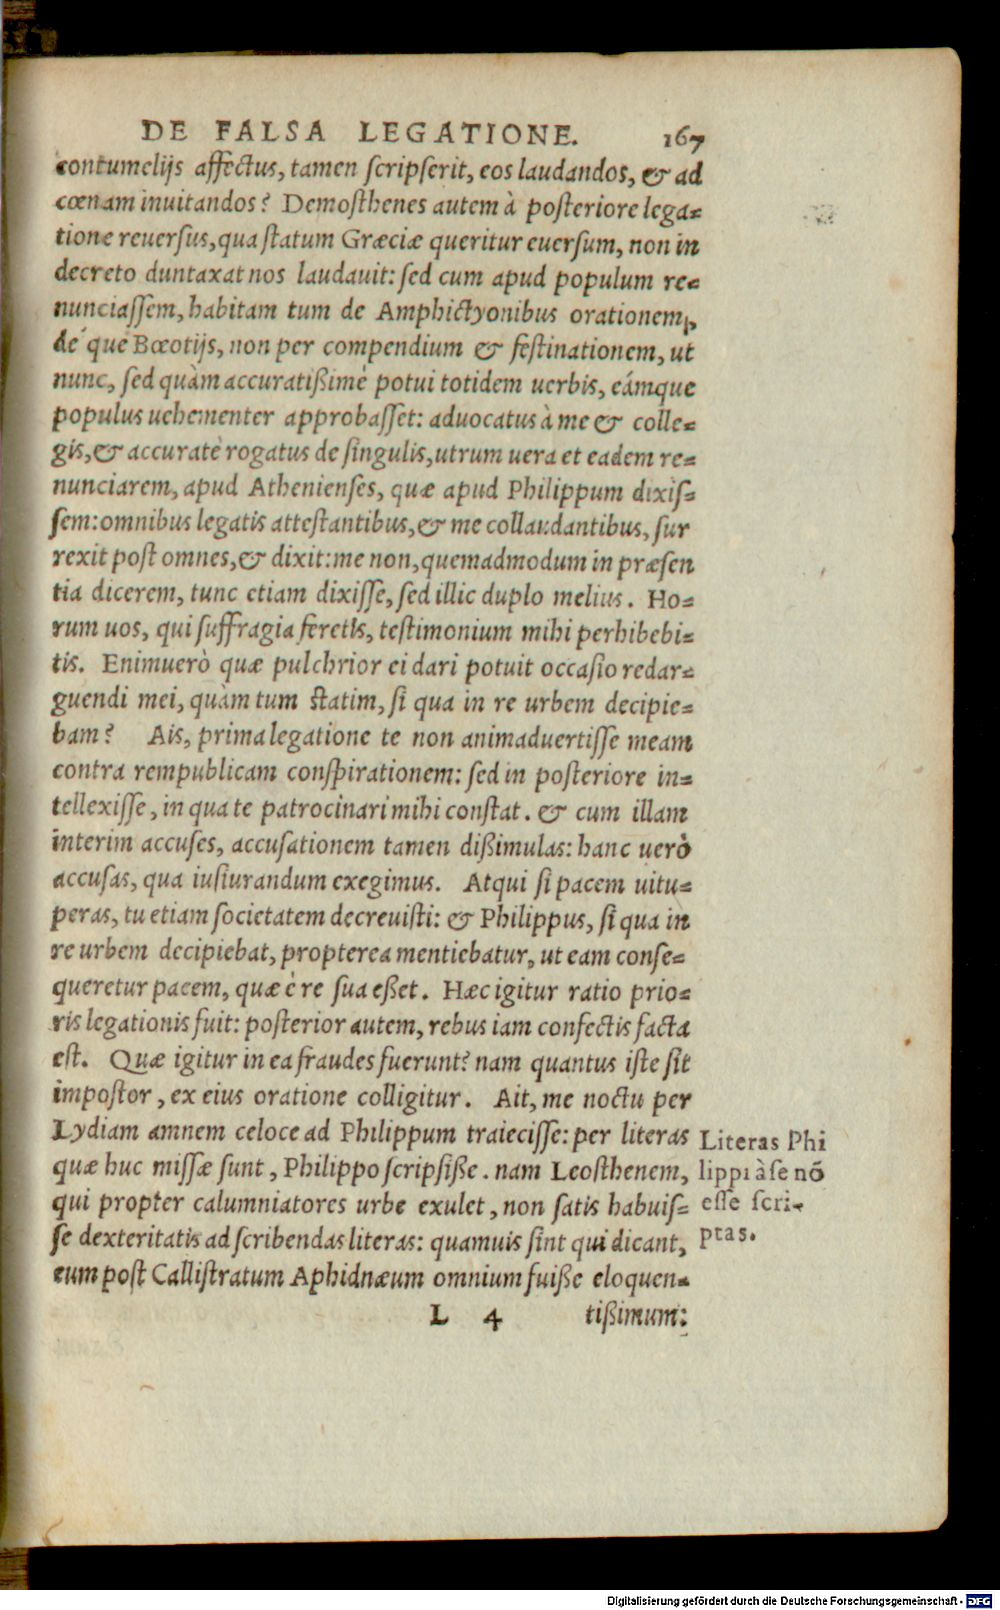 DE FALSA LEGATIONE. 167
contumelijs affectus, tamen scripserit, eos laudandos, & ad
cœnam inuitandos? Demosthenes autem à posteriore lega-
tione reuersus, qua statum Græciæ queritur euersum, non in
decreto duntaxat nos laudauit: sed cum apud populum re-
nunciassem, habitam tum de Amphictyonibus orationem,
dé que Bœotijs, non per compendium & festinationem, ut
nunc, sed quàm accuratißimè potui totidem uerbis, eámque
populus uehementer approbasset: aduocatus à me & colle-
gis, & accuratè rogatus de singulis, utrum uera et eadem re-
nunciarem, apud Athenienses, quæ apud Philippum dixis-
sem: omnibus legatis attestantibus, & me collaudantibus, sur
rexit post omnes, & dixit: me non, quemadmodum in præsen
tia dicerem, tunc etiam dixisse, sed illic duplo melius. Ho-
rum uos, qui suffragia feretis, testimonium mihi perhibebi-
tis. Enimuerò quæ pulchrior ei dari potuit occasio redar-
guendi mei, quàm tum statim, si qua in re urbem decipie-
bam? Ais, prima legatione te non animaduertisse meam
contra rempublicam conspirationem: sed in posteriore in-
tellexisse, in qua te patrocinari mihi constat. & cum illam
interim accuses, accusationem tamen dißimulas: hanc uerò
accusas, qua iusiurandum exegimus. Atqui si pacem uitu-
peras, tu etiam societatem decreuisti: & Philippus, si qua in
re urbem decipiebat, propterea mentiebatur, ut eam conse-
queretur pacem, quæ è re sua eßet. Hæc igitur ratio prio-
ris legationis fuit: posterior autem, rebus iam confectis facta
est. Quæ igitur in ea fraudes fuerunt? nam quantus iste sit
impostor, ex eius oratione colligitur. Ait, me noctu per
Lydiam amnem celoce ad Philippum traiecisse: per literas
quæ huc missæ sunt, Philippo scripsiße. nam Leosthenem,
qui propter calumniatores urbe exulet, non satis habuis-
se dexteritatis ad scribendas literas: quamuis sint qui dicant,
eum post Callistratum Aphidnæum omnium fuiße eloquen-
L 4 tißimum:
Literas Phi
lippi à se nō
esse scri-
ptas.
Digitalisierung gefördert durch die Deutsche Forschungsgemeinschaft - DFG